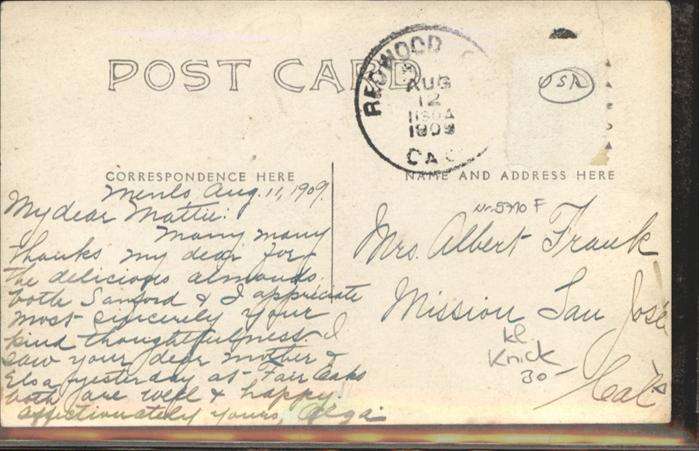 POST CARD
REDWOOD
AUG
12
1909
CAL
USA
CORRESPONDENCE HERE
NAME AND ADDRESS HERE
Menlo, Aug. 11, 1909.
My dear Mattie:
Many many
thanks my dear for
the delicious almonds
both Sanford & I appreciate
most sincerely your
kind thoughtfulness. I
saw your dear mother &
Elsa yesterday at Fair Oaks
both are well & happy.
affectionately yours, Olga
Mrs. Albert Frank
Mission San José
Cal.
kl
Knick
30-